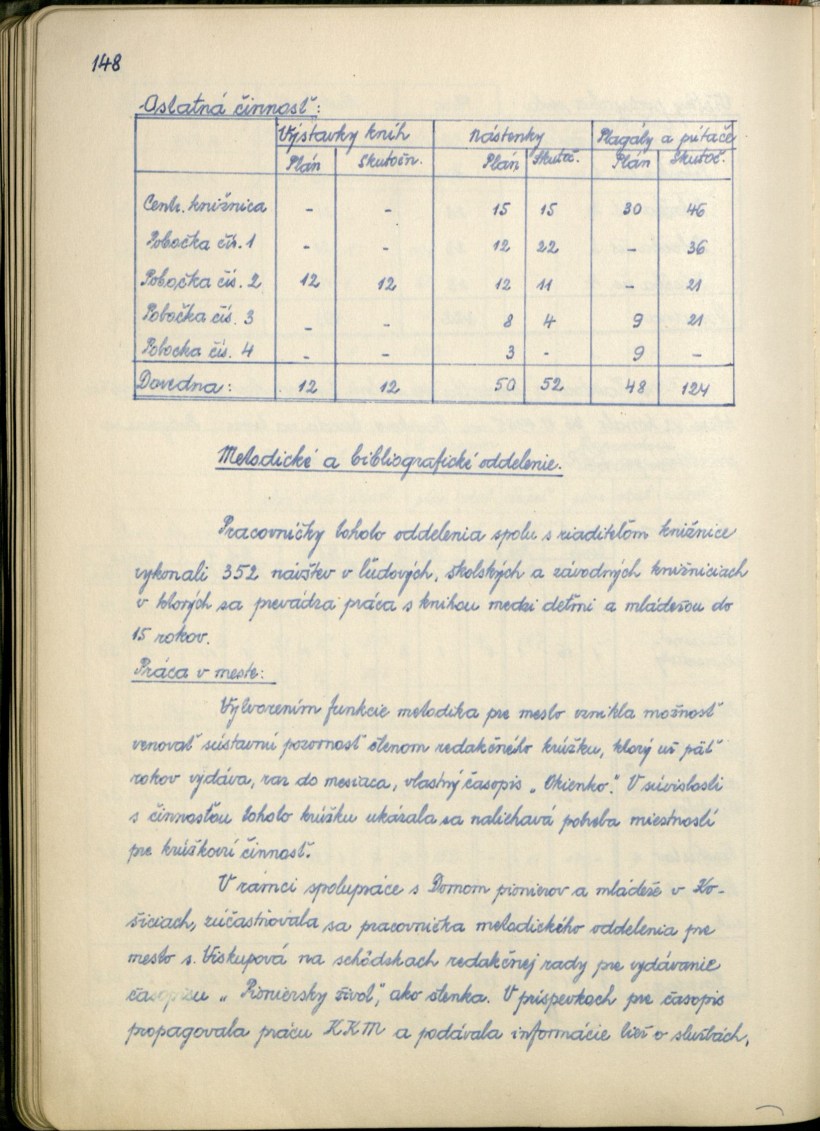 148
Ostatná činnosť:
Výstavky kníh Nástenky Plagáty a pútače
Plán Skutočn. Plán Skutoč. Plán Skutoč.
Centr. knižnica - - 15 15 30 46
Pobočka čís. 1 - - 12 22 - 36
Pobočka čís. 2 12 12 12 11 - 21
Pobočka čís. 3 - - 8 4 9 21
Pobočka čís. 4 - - 3 - 9 -
Dovedna: 12 12 50 52 48 124
Metodické a bibliografické oddelenie.
Pracovníčky tohoto oddelenia spolu s riaditeľom knižnice
vykonali 352 návštev v ľudových, školských a závodných knižniciach
v ktorých sa prevádza práca s knihou medzi deťmi a mládežou do
15 rokov.
Práca v meste:
Vytvorením funkcie metodika pre mesto vznikla možnosť
venovať sústavnú pozornosť členom redakčného krúžku, ktorý už päť
rokov vydáva, raz do mesiaca, vlastný časopis „Okienko." V súvislosti
s činnosťou tohoto krúžku ukázala sa naliehavá potreba miestností
pre krúžkovú činnosť.
V rámci spolupráce s Domom pionierov a mládeže v Ko-
šiciach, zúčastňovala sa pracovníčka metodického oddelenia pre
mesto s. Viskupová na schôdzkach redakčnej rady pre vydávanie
časopisu „Pioniersky život," ako členka. V príspevkoch pre časopis
propagovala prácu KKM a podávala informácie tiež o službách,